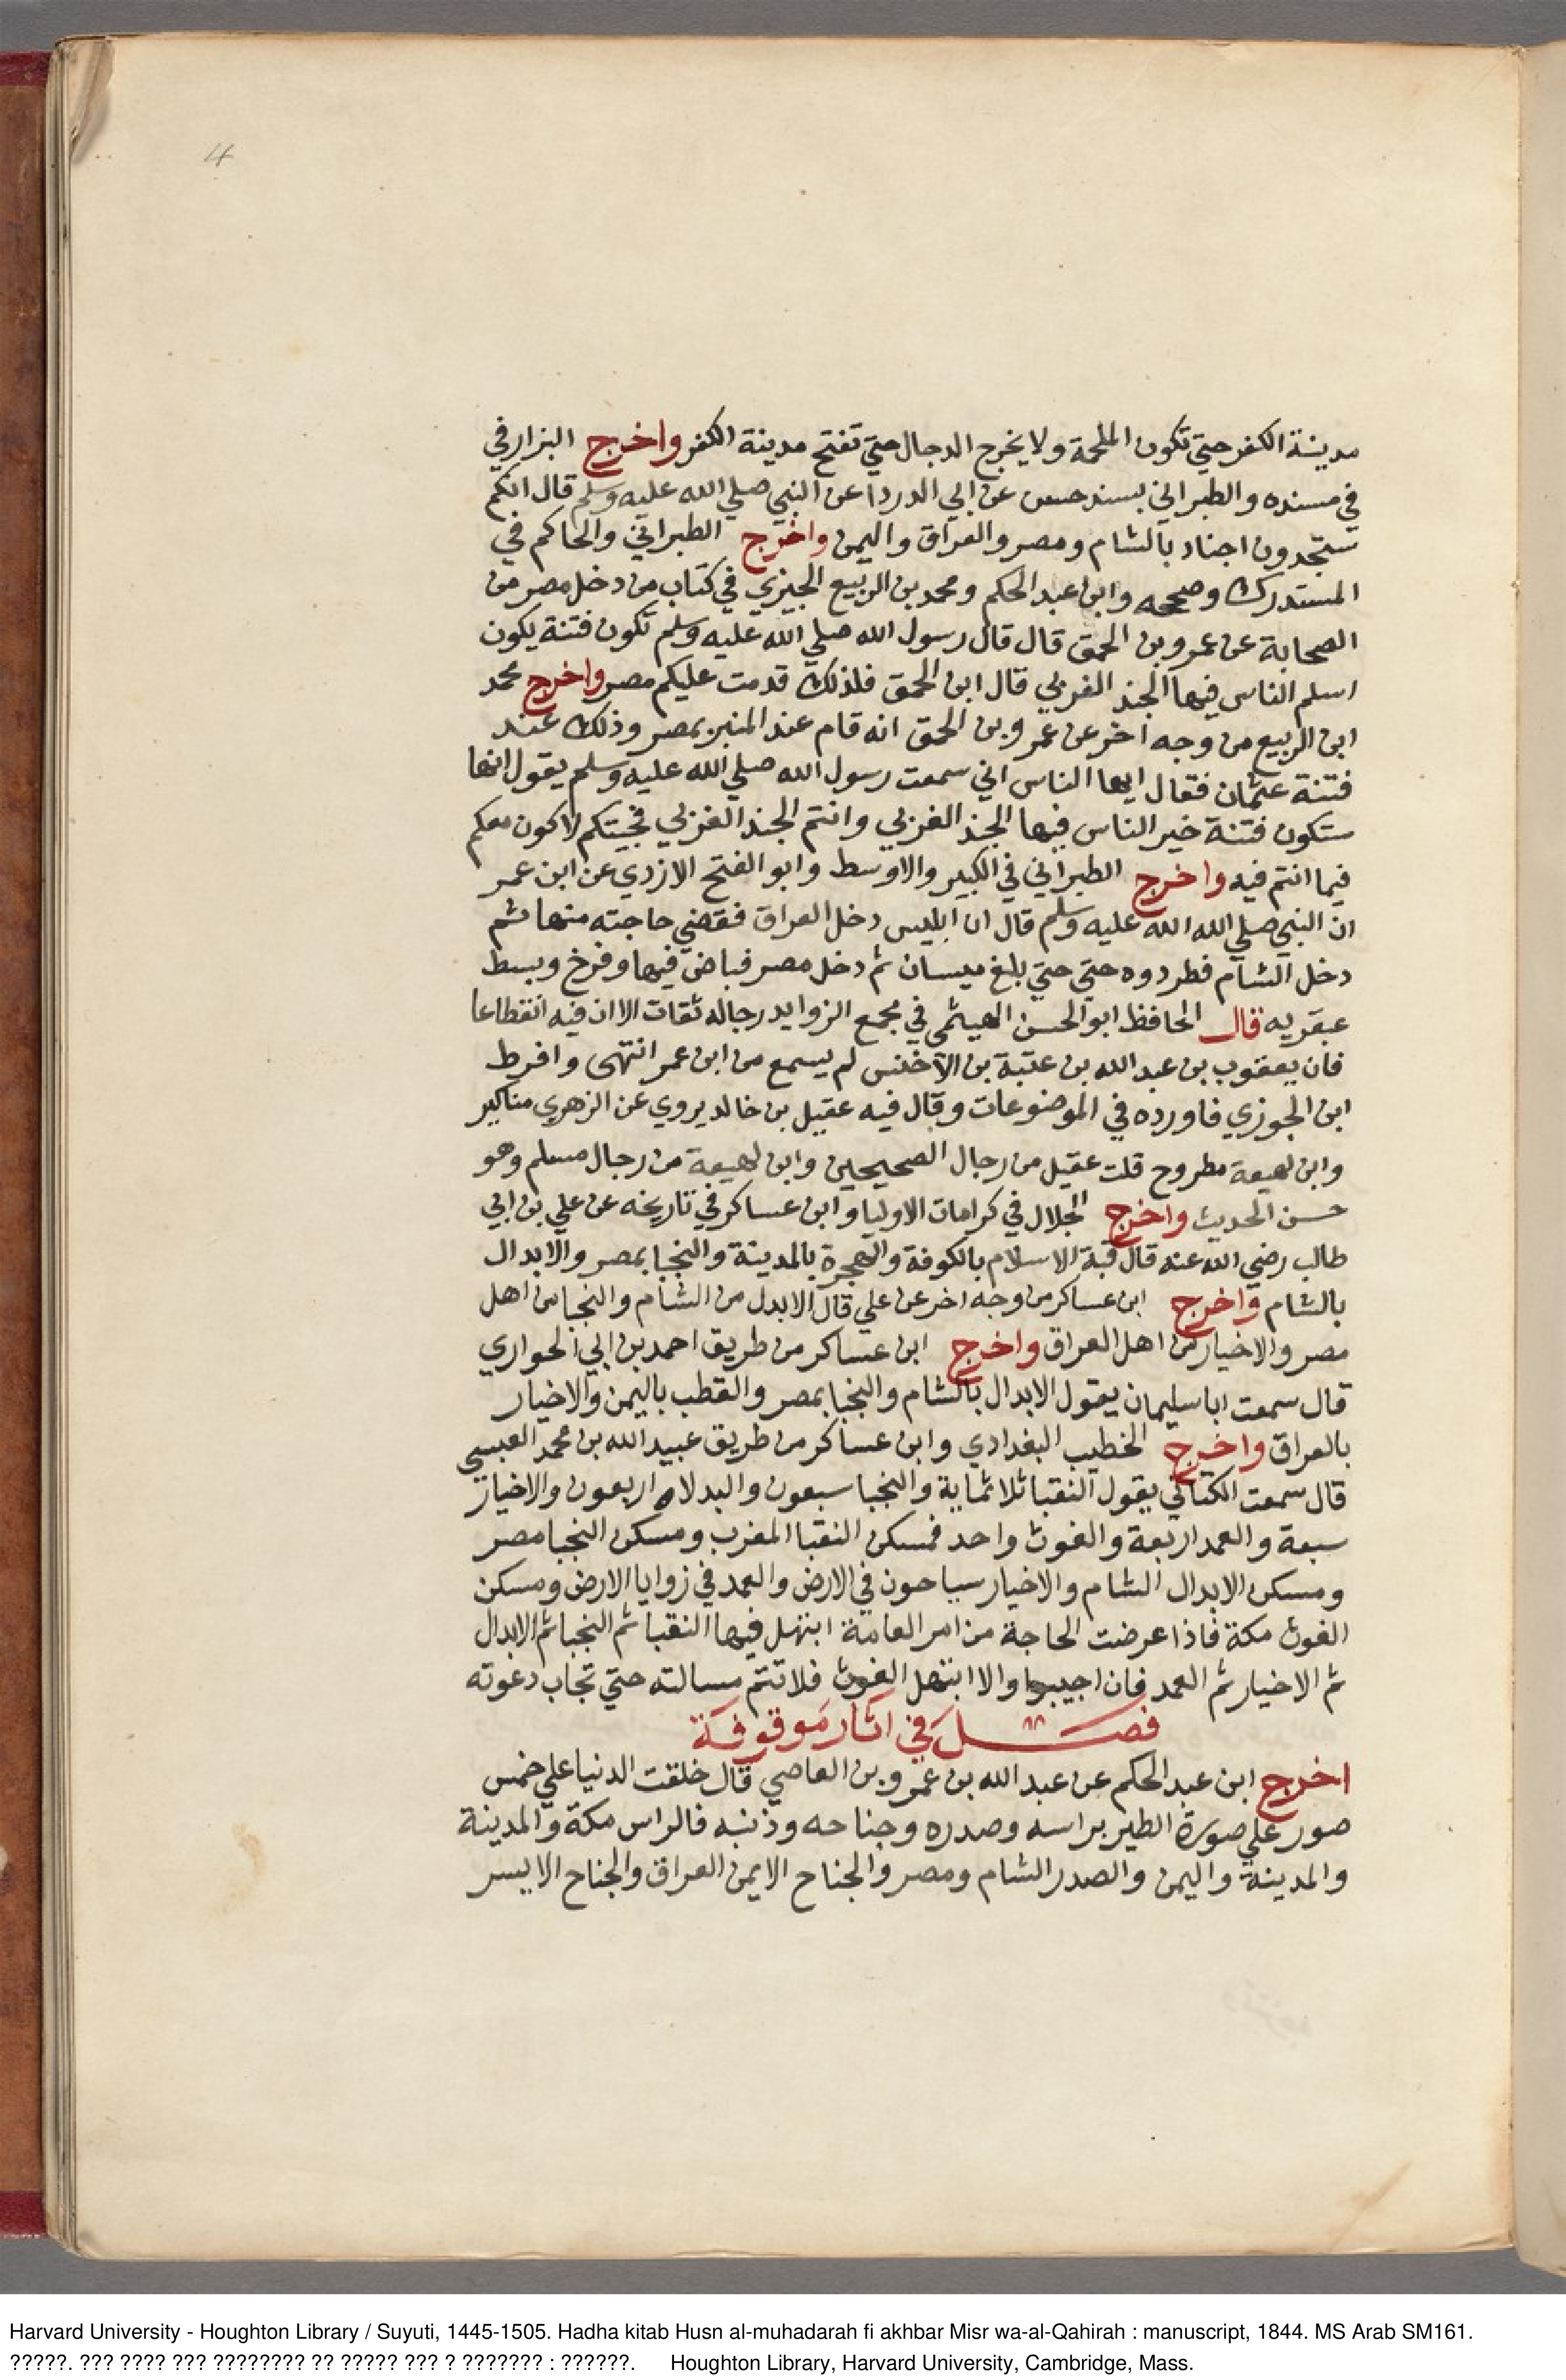 4
مدينة الكفر حتي تكون الملحمة ولا يخرج الدجال حتي تفتح مدينة الكفر واخرج البزار في
في مسنده والطبراني بسند حسن عن ابي الدردا عن النبي صلي الله عليه وسلم قال انكم
ستجدون اجناد بالشام ومصر والعراق واليمن واخرج الطبراني والحاكم في
المستدرك وصححه وابن عبد الحكم ومحمد بن الربيع الجيزي في كتاب من دخل مصر من
الصحابة عن عمرو بن الحمق قال قال رسول الله صلي الله عليه وسلم تكون فتنة يكون
اسلم الناس فيها الجند الغربي قال ابن الحمق فلذلك قدمت عليكم مصر واخرج محمد
ابن الربيع من وجه اخر عن عمرو بن الحمق انه قام عند المنبر بمصر وذلك عند
فتنة عثمان فقال ايها الناس اني سمعت رسول الله صلي الله عليه وسلم يقول انها
ستكون فتنة خير الناس فيها الجند الغربي وانتم الجند الغربي فجيتكم لاكون معكم
فيما انتم فيه واخرج الطبراني في الكبير والاوسط وابو الفتح الازدي عن ابن عمر
ان النبي صلي الله الله عليه وسلم قال ان ابليس دخل العراق فقضي حاجته منها ثم
دخل الشام فطردوه حتي حتي بلغ ميسان ثم دخل مصر فباض فيها وفرخ وبسط
عبقريه قال الحافظ ابو الحسن الهيثمي في مجمع الزوايد رجاله ثقات الا ان فيه انقطاعا
فان يعقوب بن عبد الله بن عتبة بن الاخنس لم يسمع من ابن عمر انتهى وافرط
ابن الجوزي فاورده في الموضوعات وقال فيه عقيل بن خالد يروي عن الزهري مناكير
وابن لهيعة مطروح قلت عقيل من رجال الصحيحين وابن لهيعة من رجال مسلم وهو
حسن الحديث واخرج الجلال في كرامات الاوليا وابن عساكر في تاريخه عن علي بن ابي
طالب رضي الله عنه قال قبة الاسلام بالكوفة والهجرة بالمدينة والنجبا بمصر والابدال
بالشام واخرج ابن عساكر من وجه اخر عن علي قال الابدل من الشام والنجبا من اهل
مصر والاخيار من اهل العراق واخرج ابن عساكر من طريق احمد بن ابي الحواري
قال سمعت ابا سليمان يقول الابدال بالشام والنجبا بمصر والقطب باليمن والاخيار
بالعراق واخرج الخطيب البغدادي وابن عساكر من طريق عبيد الله بن محمد العبسي
قال سمعت الكتاني يقول النقبا ثلاثماية والنجبا سبعون والبدلاه اربعون والاخيار
سبعة والعمد اربعة والغوث واحد فمسكن النقبا المغرب ومسكن النجبا مصر
ومسكن الابدال الشام والاخيار سياحون في الارض والعمد في زوايا الارض ومسكن
الغوث مكة فاذا عرضت الحاجة من امر العامة ابتهل فيها النقبا ثم النجبا ثم الابدال
ثم الاخيار ثم العمد فان اجيبوا والا ابتهل الغوث فلا تتم مسالته حتي تجاب دعوته
فصل في اثار موقوفة
اخرج ابن عبد الحكم عن عبد الله بن عمرو بن العاصي قال خلقت الدنيا علي خمس
صور علي صورة الطير براسه وصدره وجناحه وذنبه فالراس مكة والمدينة
والمدينة واليمن والصدر الشام ومصر والجناح الايمن العراق والجناح الايسر
Harvard University - Houghton Library / Suyuti, 1445-1505. Hadha kitab Husn al-muhadarah fi akhbar Misr wa-al-Qahirah : manuscript, 1844. MS Arab SM161.
?????. ??? ???? ??? ???????? ?? ????? ??? ? ??????? : ??????. Houghton Library, Harvard University, Cambridge, Mass.